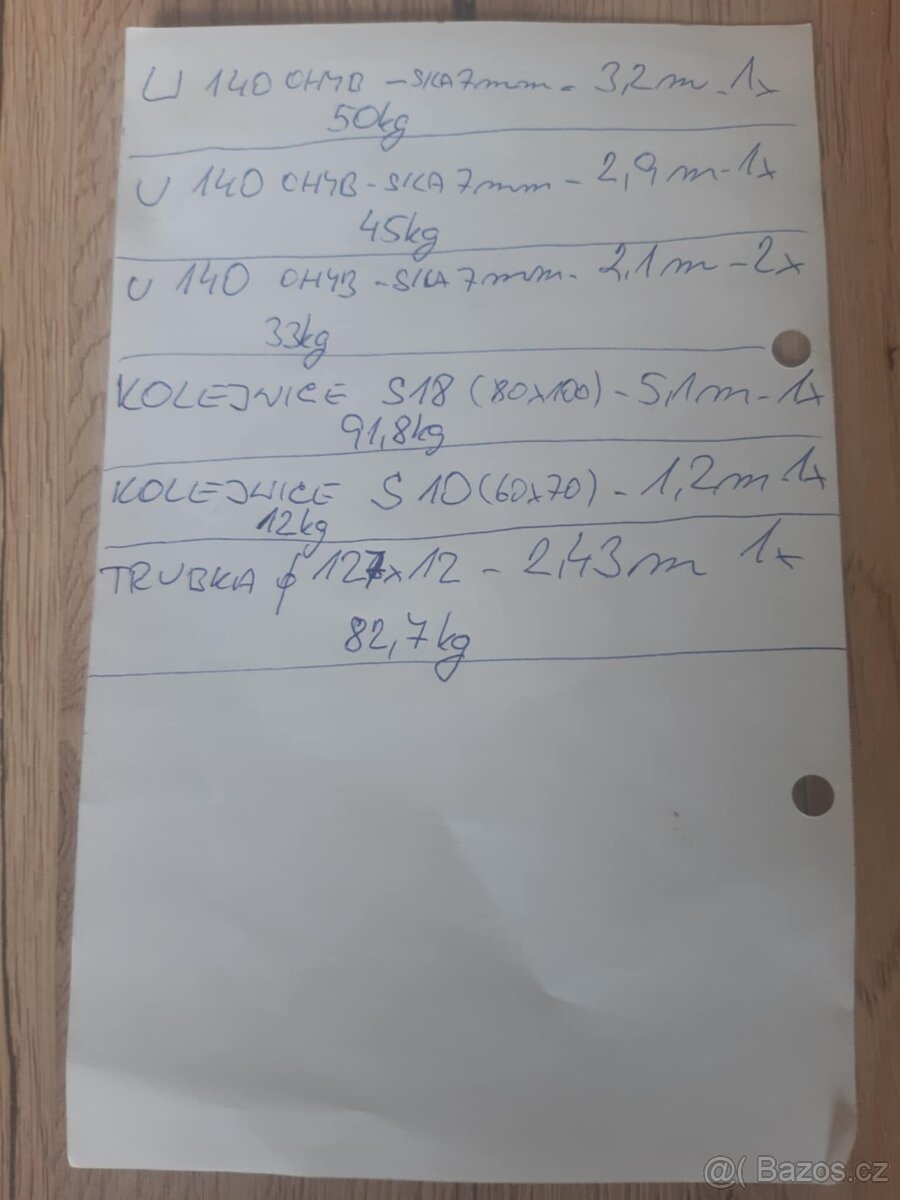 U 140 OHYB - SKA 7mm - 3,2m - 1x
50kg
U 140 OHYB - SKA 7mm - 2,9m - 1x
45kg
U 140 OHYB - SKA 7mm - 2,1m - 2x
33kg
KOLEJNICE S18 (80x100) - 5,1m - 1x
91,8kg
KOLEJNICE S10 (60x70) - 1,2m 1x
12kg
TRUBKA ϕ 127x12 - 2,43m 1x
82,7kg
@( Bazos.cz